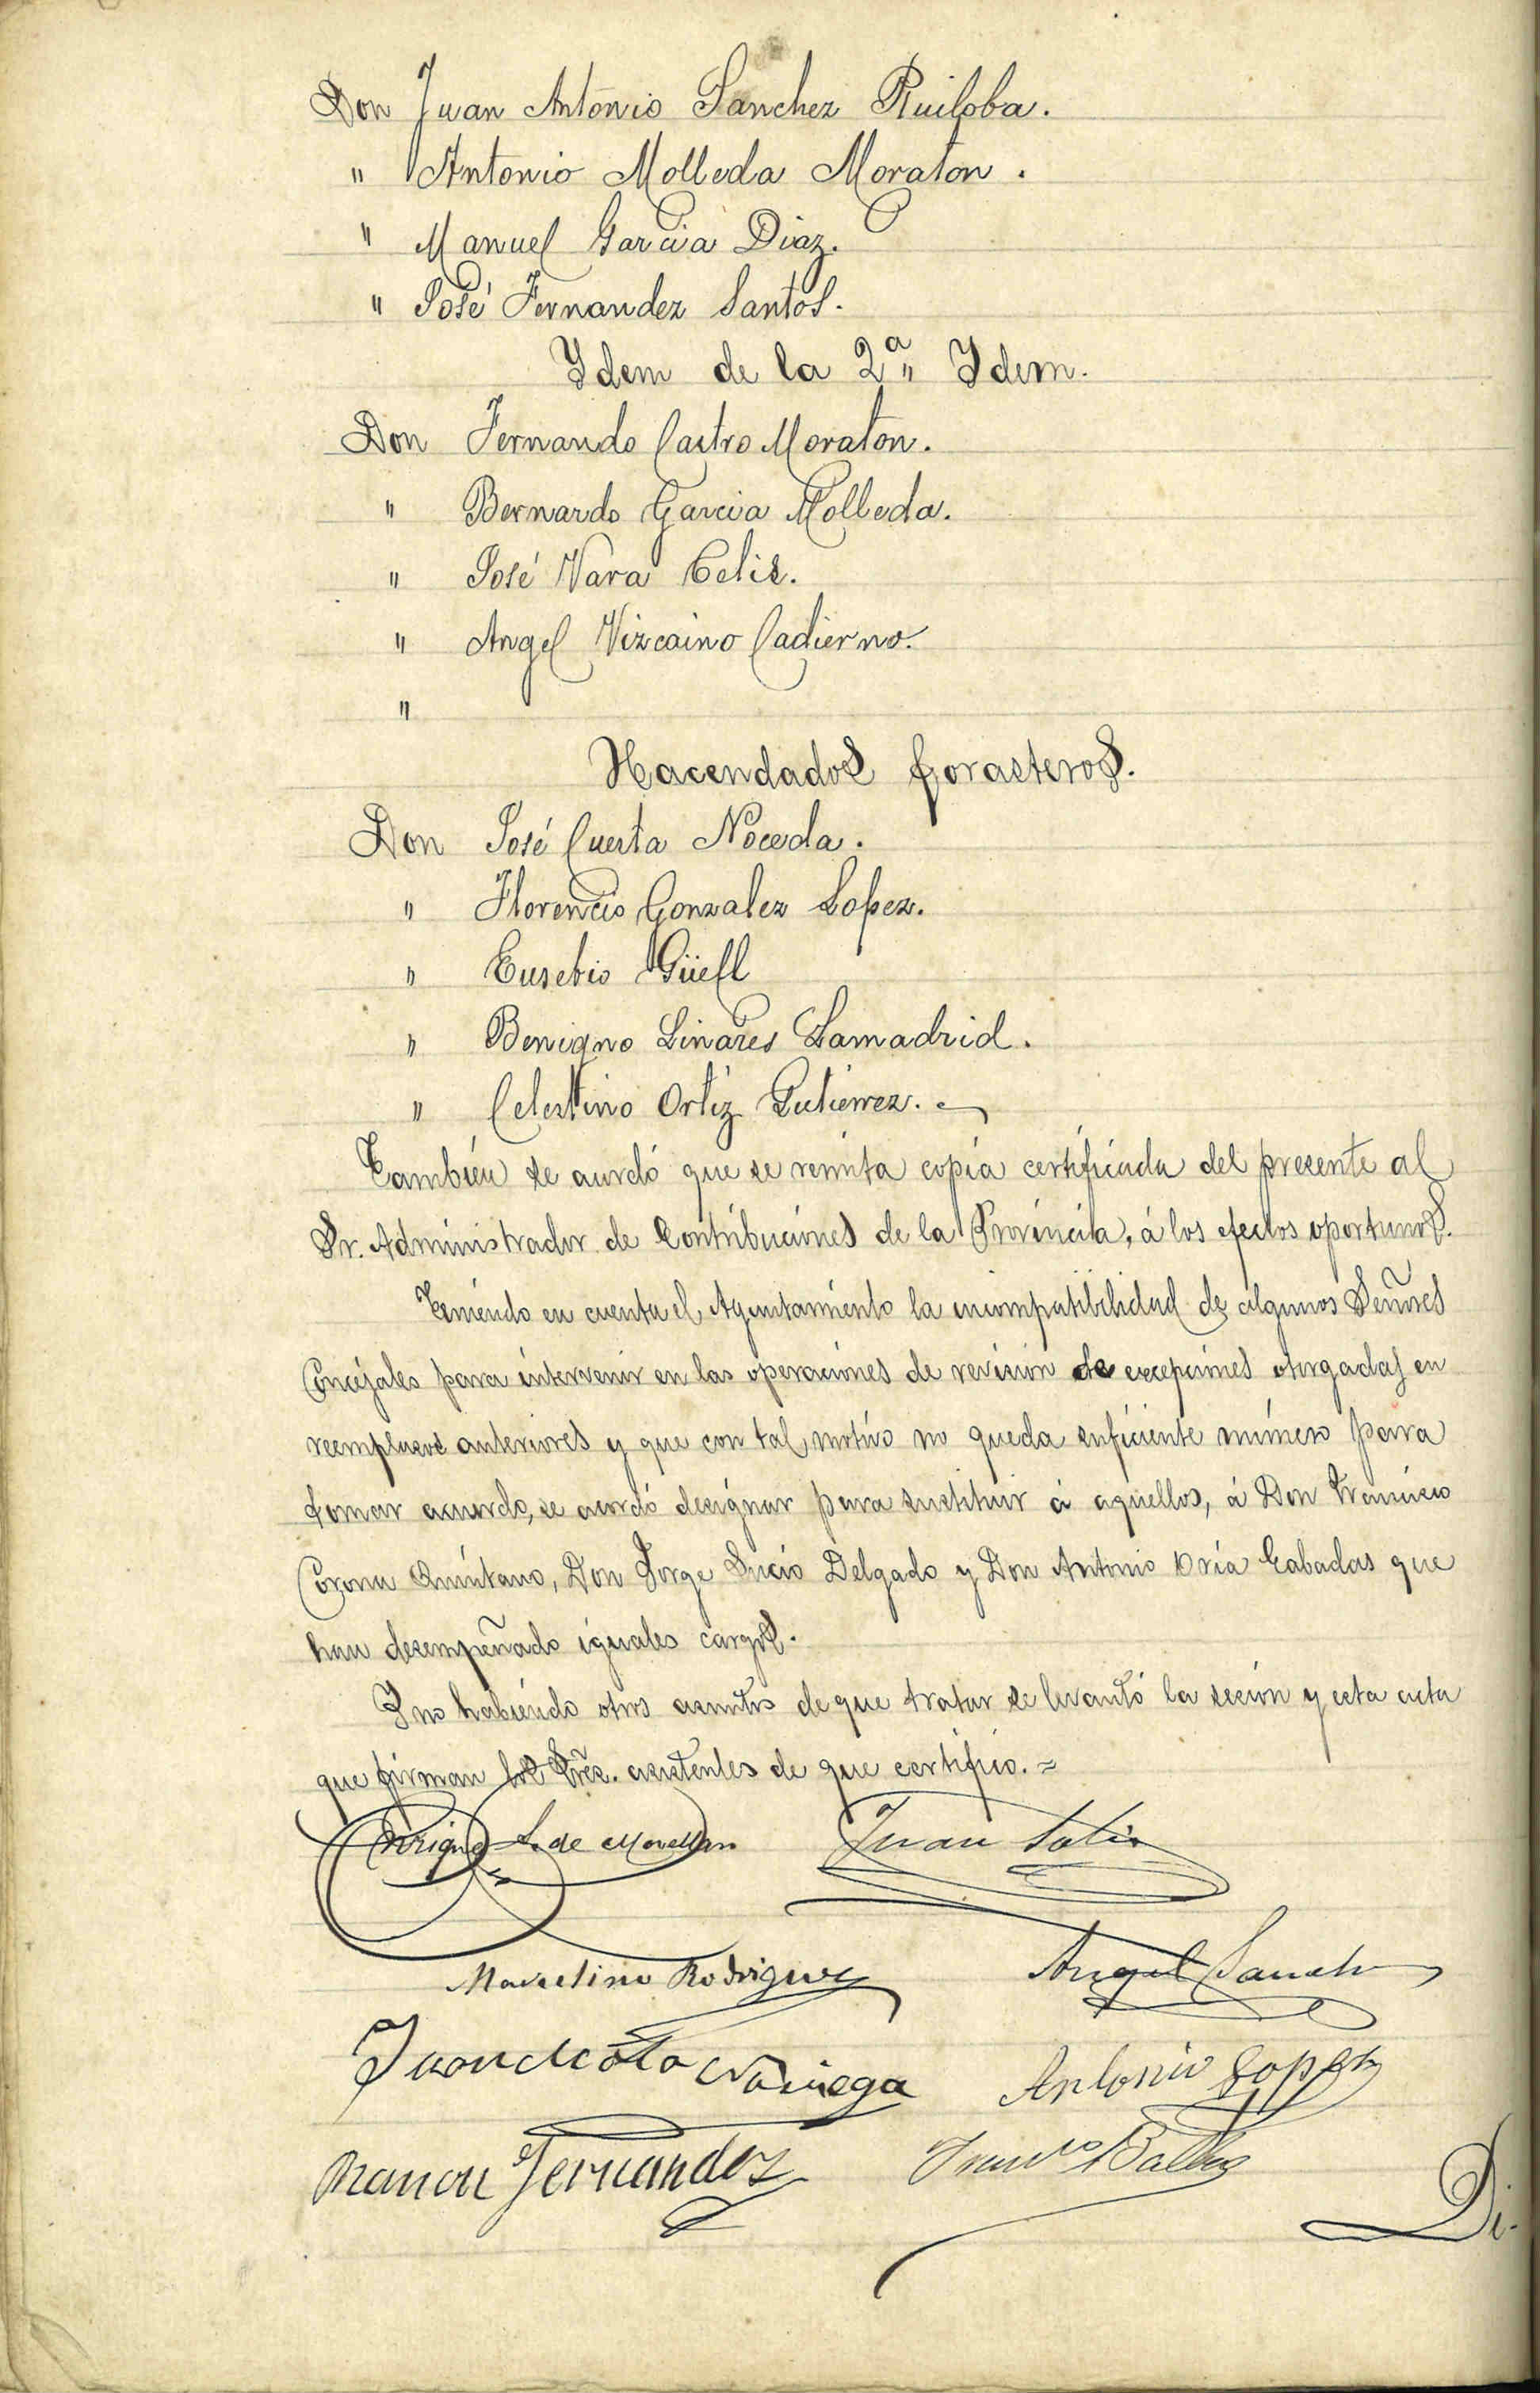 Don Juan Antonio Sanchez Ruiloba.
" Antonio Molleda Moraton.
" Manuel Garcia Diaz.
" José Fernandez Santos.
Ydem de la 2ª" Ydem.
Don Fernando Castro Moraton.
" Bernardo Garcia Molleda.
" José Vara Celis.
" Angel Vizcaino Cadierno.
"
Hacendados forasteros.
Don José Cuesta Noceda.
" Florencio Gonzalez Lopez.
" Eusebio Güell
" Benigno Linares Lamadrid.
" Celestino Ortiz Gutierrez.
Tambien se acordó que se remita copia certificada del presente al
Sr. Administrador de Contribuciones de la Provincia, á los efectos oportunos.
Teniendo en cuenta el Ayuntamiento la incompatibilidad de algunos Señores
Concejales para intervenir en las operaciones de revision de excepciones otorgadas en
reemplazos anteriores y que con tal motivo no queda suficiente número para
tomar acuerdo, se acordó designar para sustituir á aquellos, á Don Francisco
Corona Quintano, Don Jorge Sucio Delgado y Don Antonio Oria Cabadas que
han desempeñado iguales cargos.
Y no habiendo otros asuntos de que tratar se levantó la sesion y esta acta
que firman los Sres. asistentes de que certifico. =
Enrique S. de Movellan Juan
Marcelino Rodriguez Angel Sanch
Juan Noriega Antonio Lopez
Ramon Fernandez
Di-